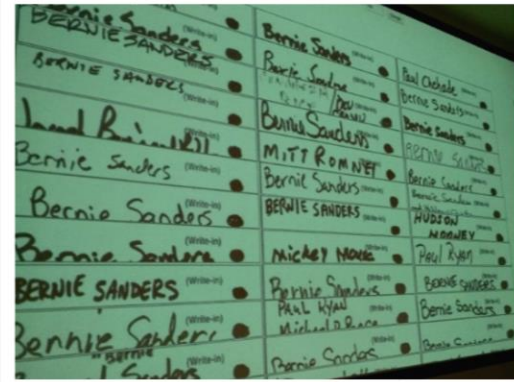 Bernie Sanders
BERNIE SANDERS
(Write-in)
BERNIE SANDERS
(Write-in)
(Write-in)
Bernie Sanders
(Write-in)
Bernie Sanders
(Write-in)
Bernie Sanders
(Write-in)
BERNIE SANDERS
(Write-in)
Bennie Sanders
(Write-in)
"Bernie
Sanders
(Write-in)
Bernie Sanders
(Write-in)
Bernie Sanders
(Write-in)
(Write-in)
Bernie Sanders
(Write-in)
MITT ROMNEY
(Write-in)
Bernie Sanders
(Write-in)
BERNIE SANDERS
(Write-in)
Mickey Mouse
(Write-in)
Bernie Sanders
(Write-in)
PAUL RYAN
Michael
(Write-in)
Bernie Sanders
(Write-in)
Paul
(Write-in)
Bernie Sanders
(Write-in)
Bernie Sanders
(Write-in)
Bernie Sanders
(Write-in)
Bernie Sanders
Bernie Sanders
HUDSON
MOONEY
Paul Ryan
(Write-in)
BERNIE SANDERS
(Write-in)
Bernie Sanders
(Write-in)
Bernie Sanders
(Write-in)